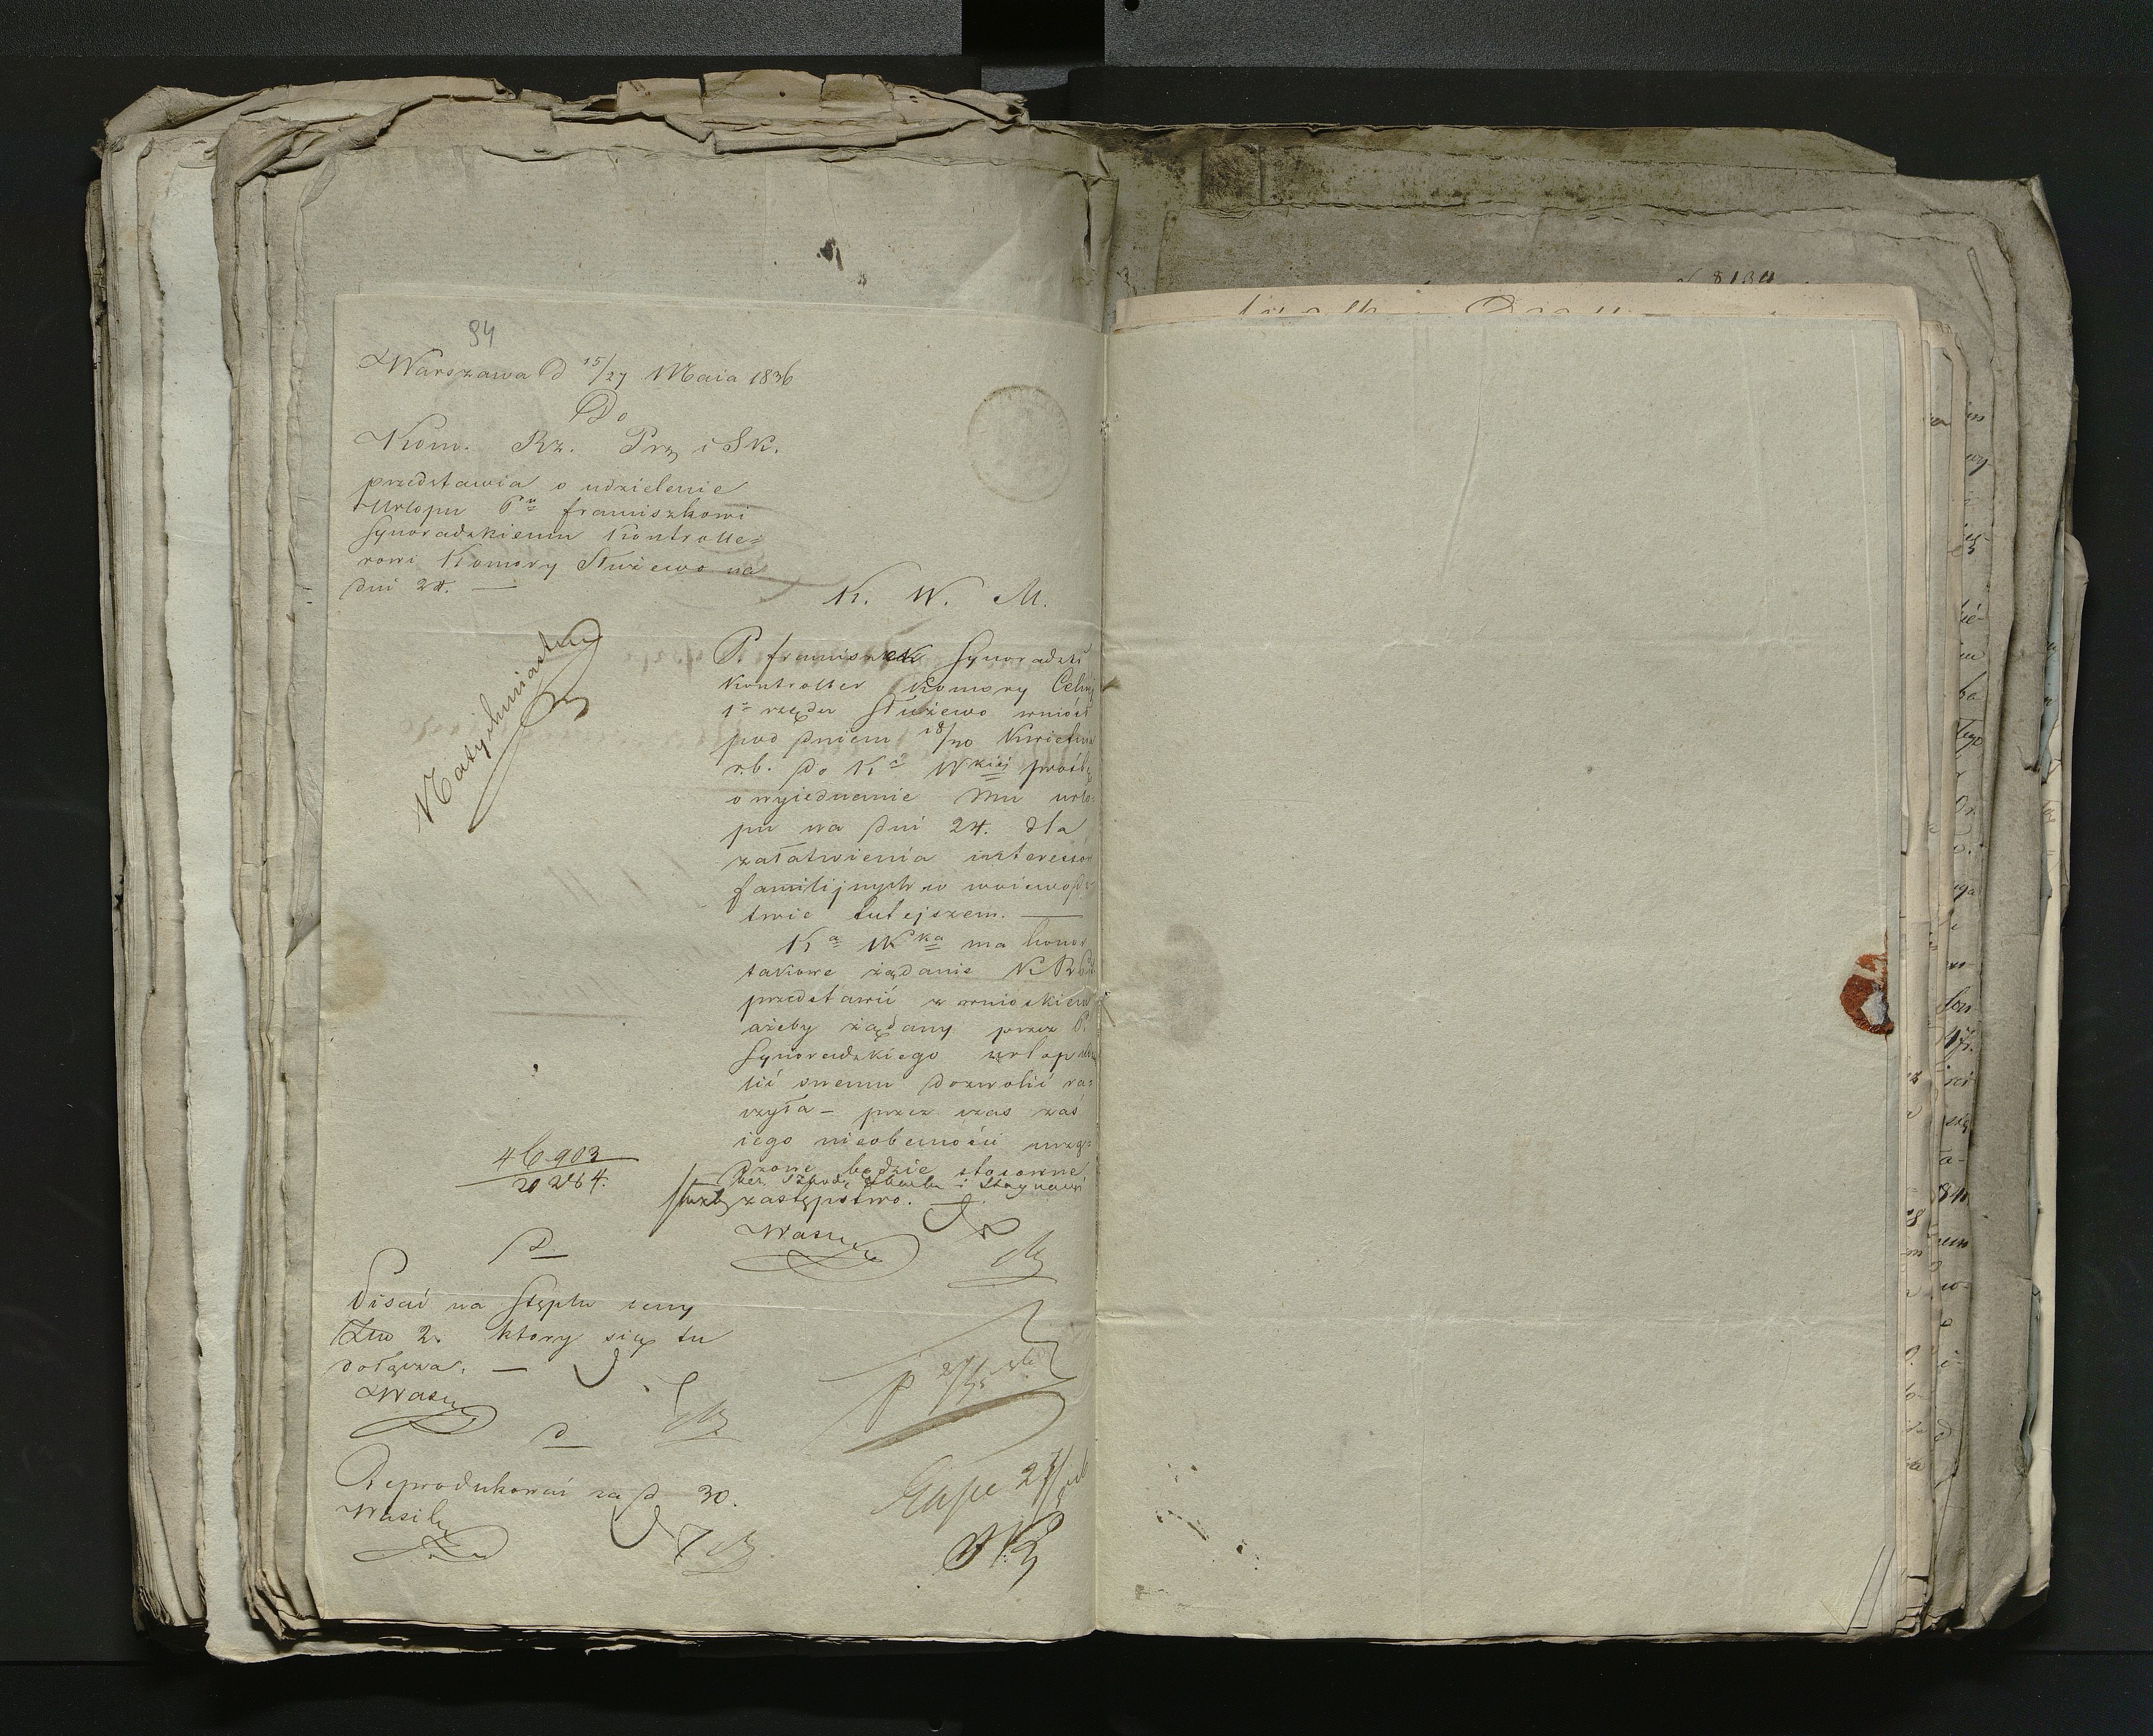 94
Warszawa d 15/27 Maia 1836
Do
Kom. Rz. Prz i Sk.
przedstawia o udzielenie
Urlopu Pu franciszkowi
Synoradzkiemu Kontrolle=
rowi Komory Służewo na
dni 24. —
Natychmiast
K. W. M.
P. franciszek Synoradzki
Kontroller Komory Celnej
1o rzędu Służewo wniósł
pod dniem 18/30 Kwietnia
r.b. do Ki Wkiéj prośbę
o wyiednanie Mu urlo=
pu na dni 24. dla
załatwienia interessów
familijnych w woiewodz
twie tutejszem. —
Ka Wka ma honor
takowe żądanie K R P
przedstawić z wnioskiem
ażeby żądany przez P.
Synoradzkiego urlop
lić onemu dozwolić ra=
czyła — przez czas zaś
iego nieobecności urzą=
dzone będzie stosowne
bez szkody Skarbu i
służby zastępstwo.
46903
20264.
D
Pisać na Stęplu ceny
Zło 2. który się tu
dołącza. —
D
Reprodukować za d 30.
27/5
27/5